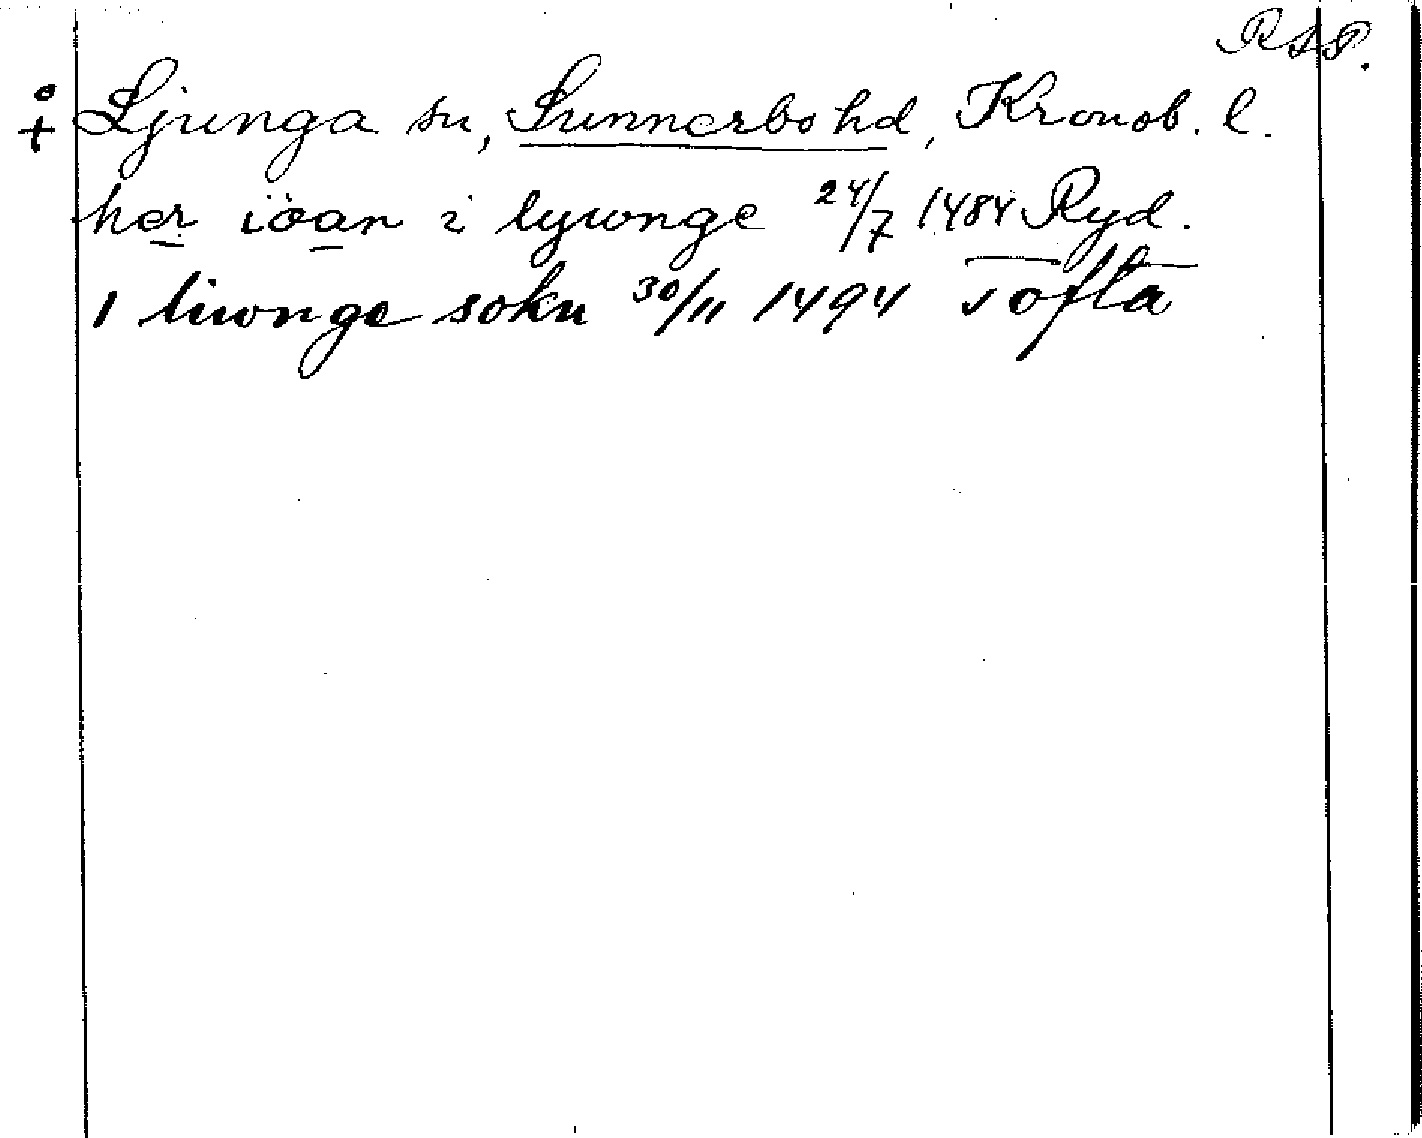 RAP.
° + Ljunga sn, Sunnerbo hd, Kronob. l.
her iöan i lywnge 24/7 1484 Ryd.
I liwnge sokn 30/11 1494 Tofta